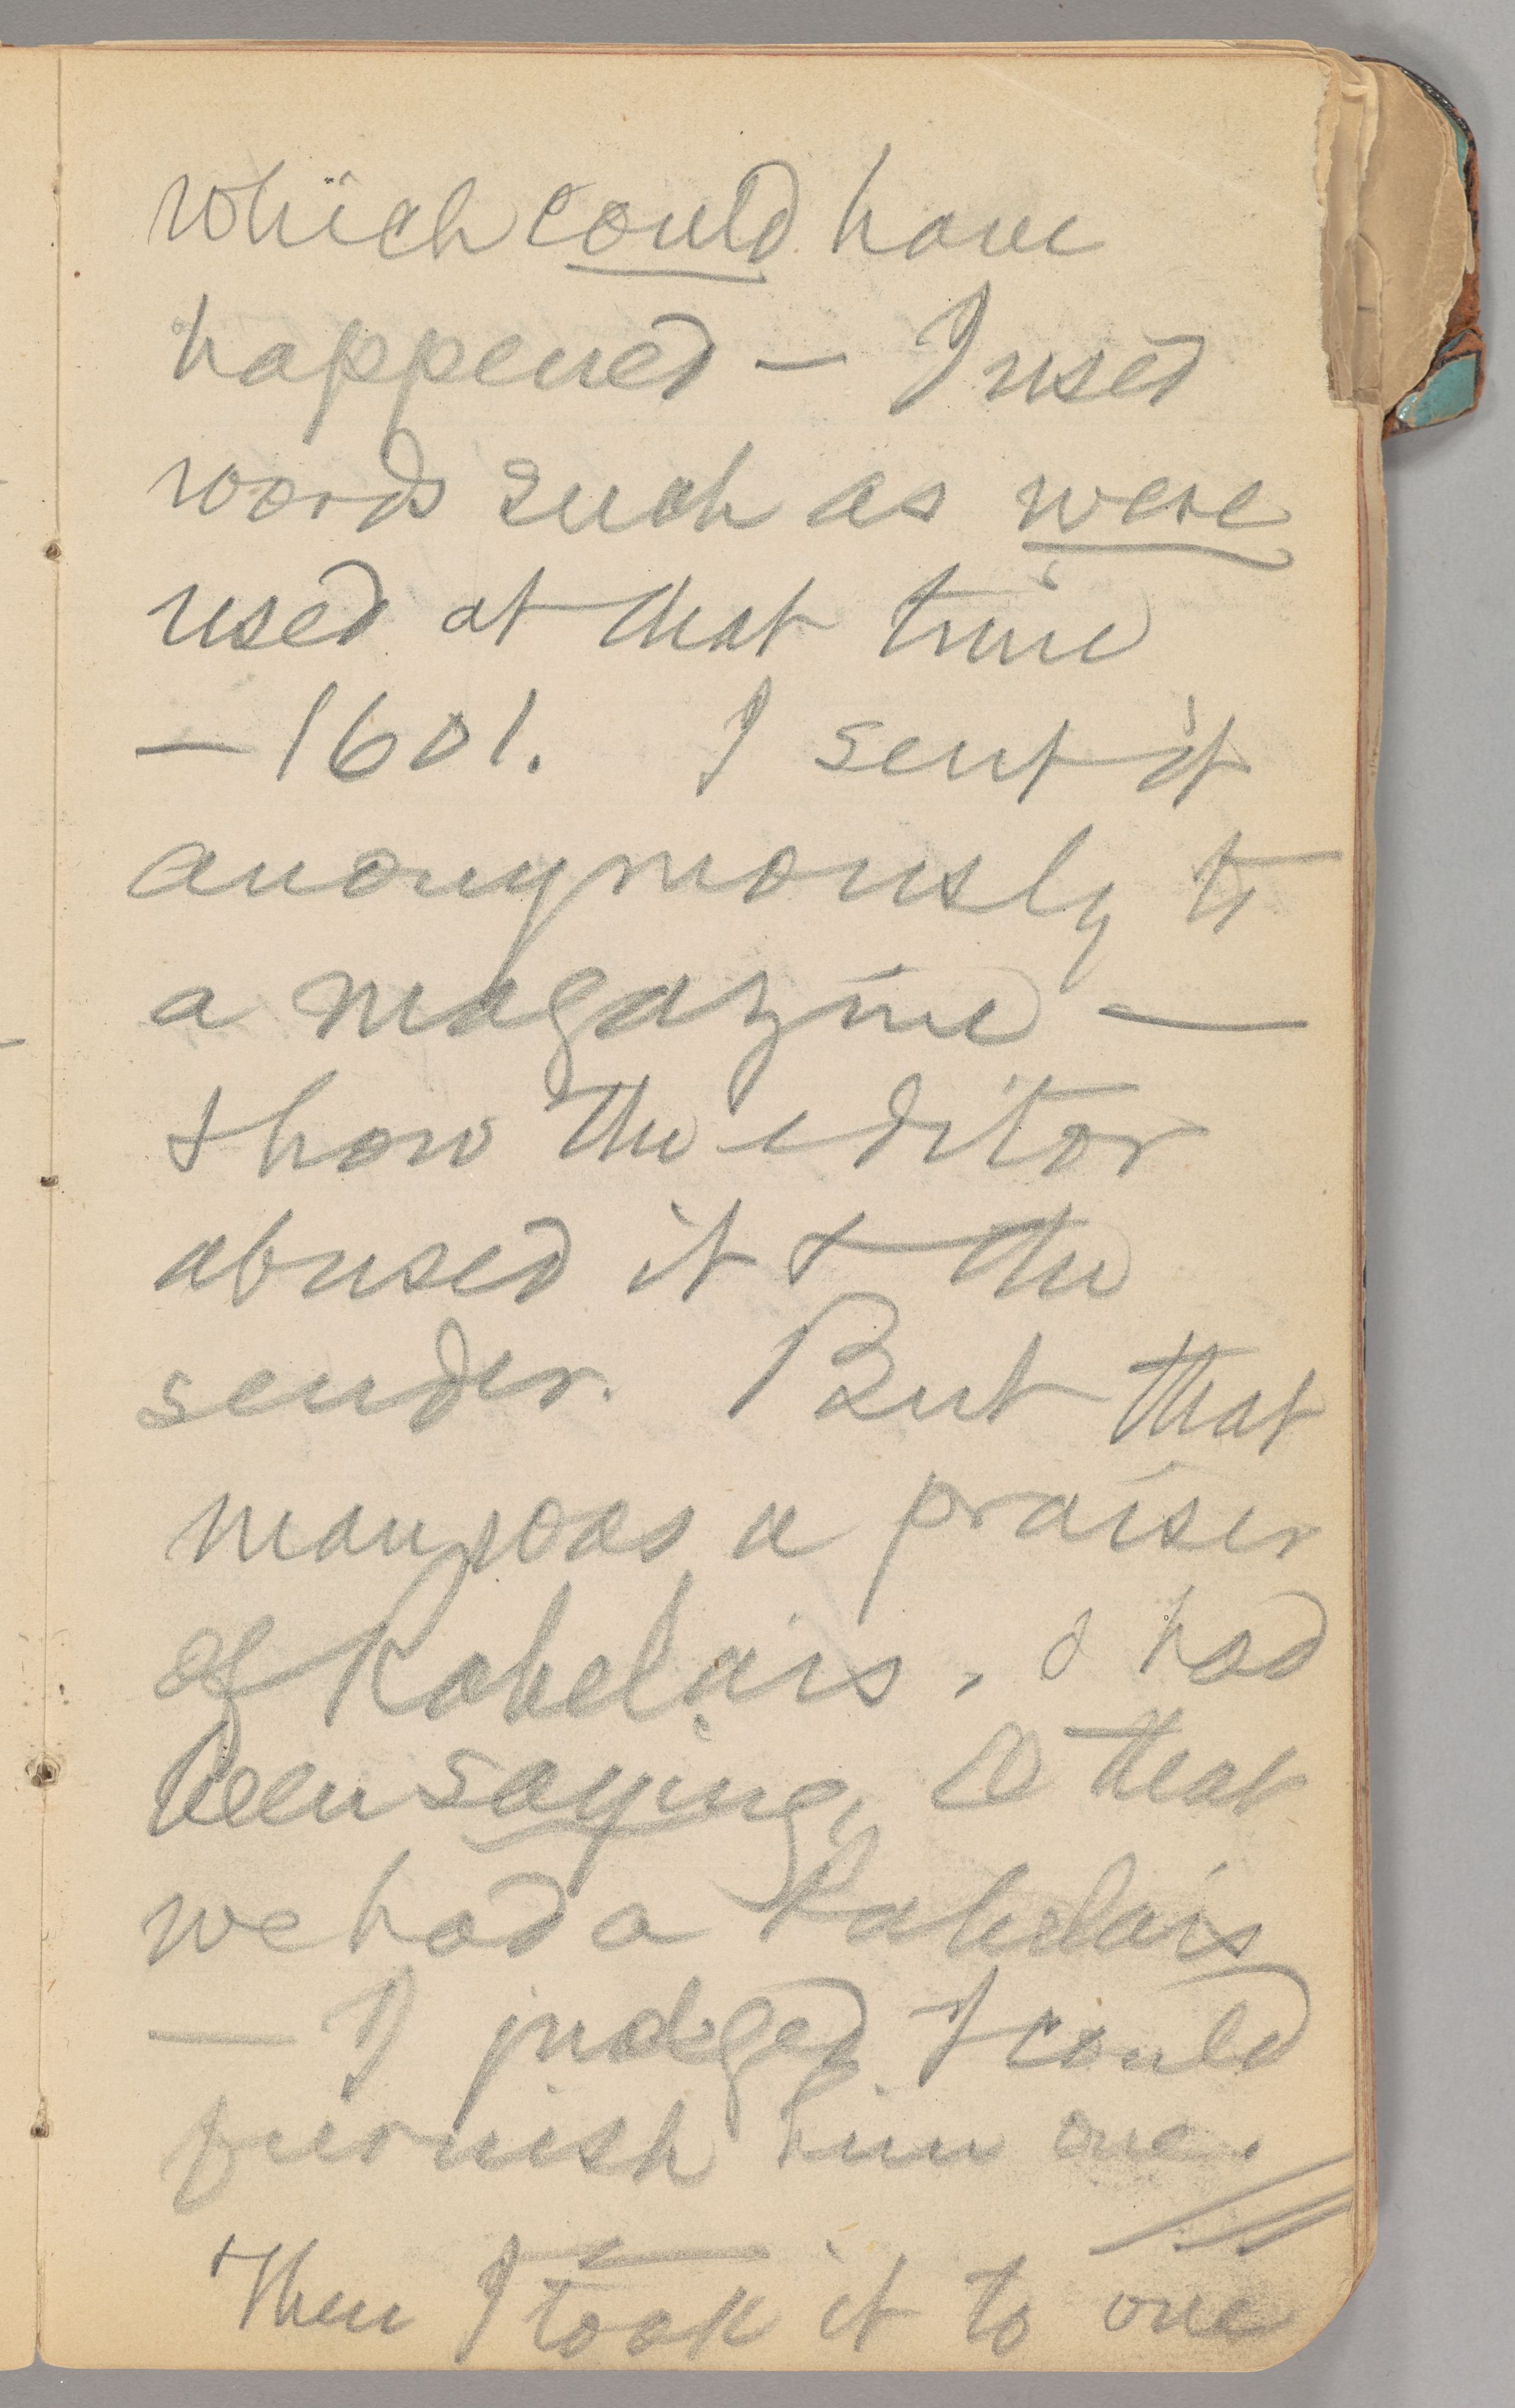 which could have
happened — I used
words such as were
used at that time
— 1601. I sent it
anonymously to
a magazine —
& how the editor
abused it & the
sender. But that
man was a praiser
of Rabelais, & had
been saying, O that
we had a Rabelais
— I judged I could
furnish him one.
Then I took it to one